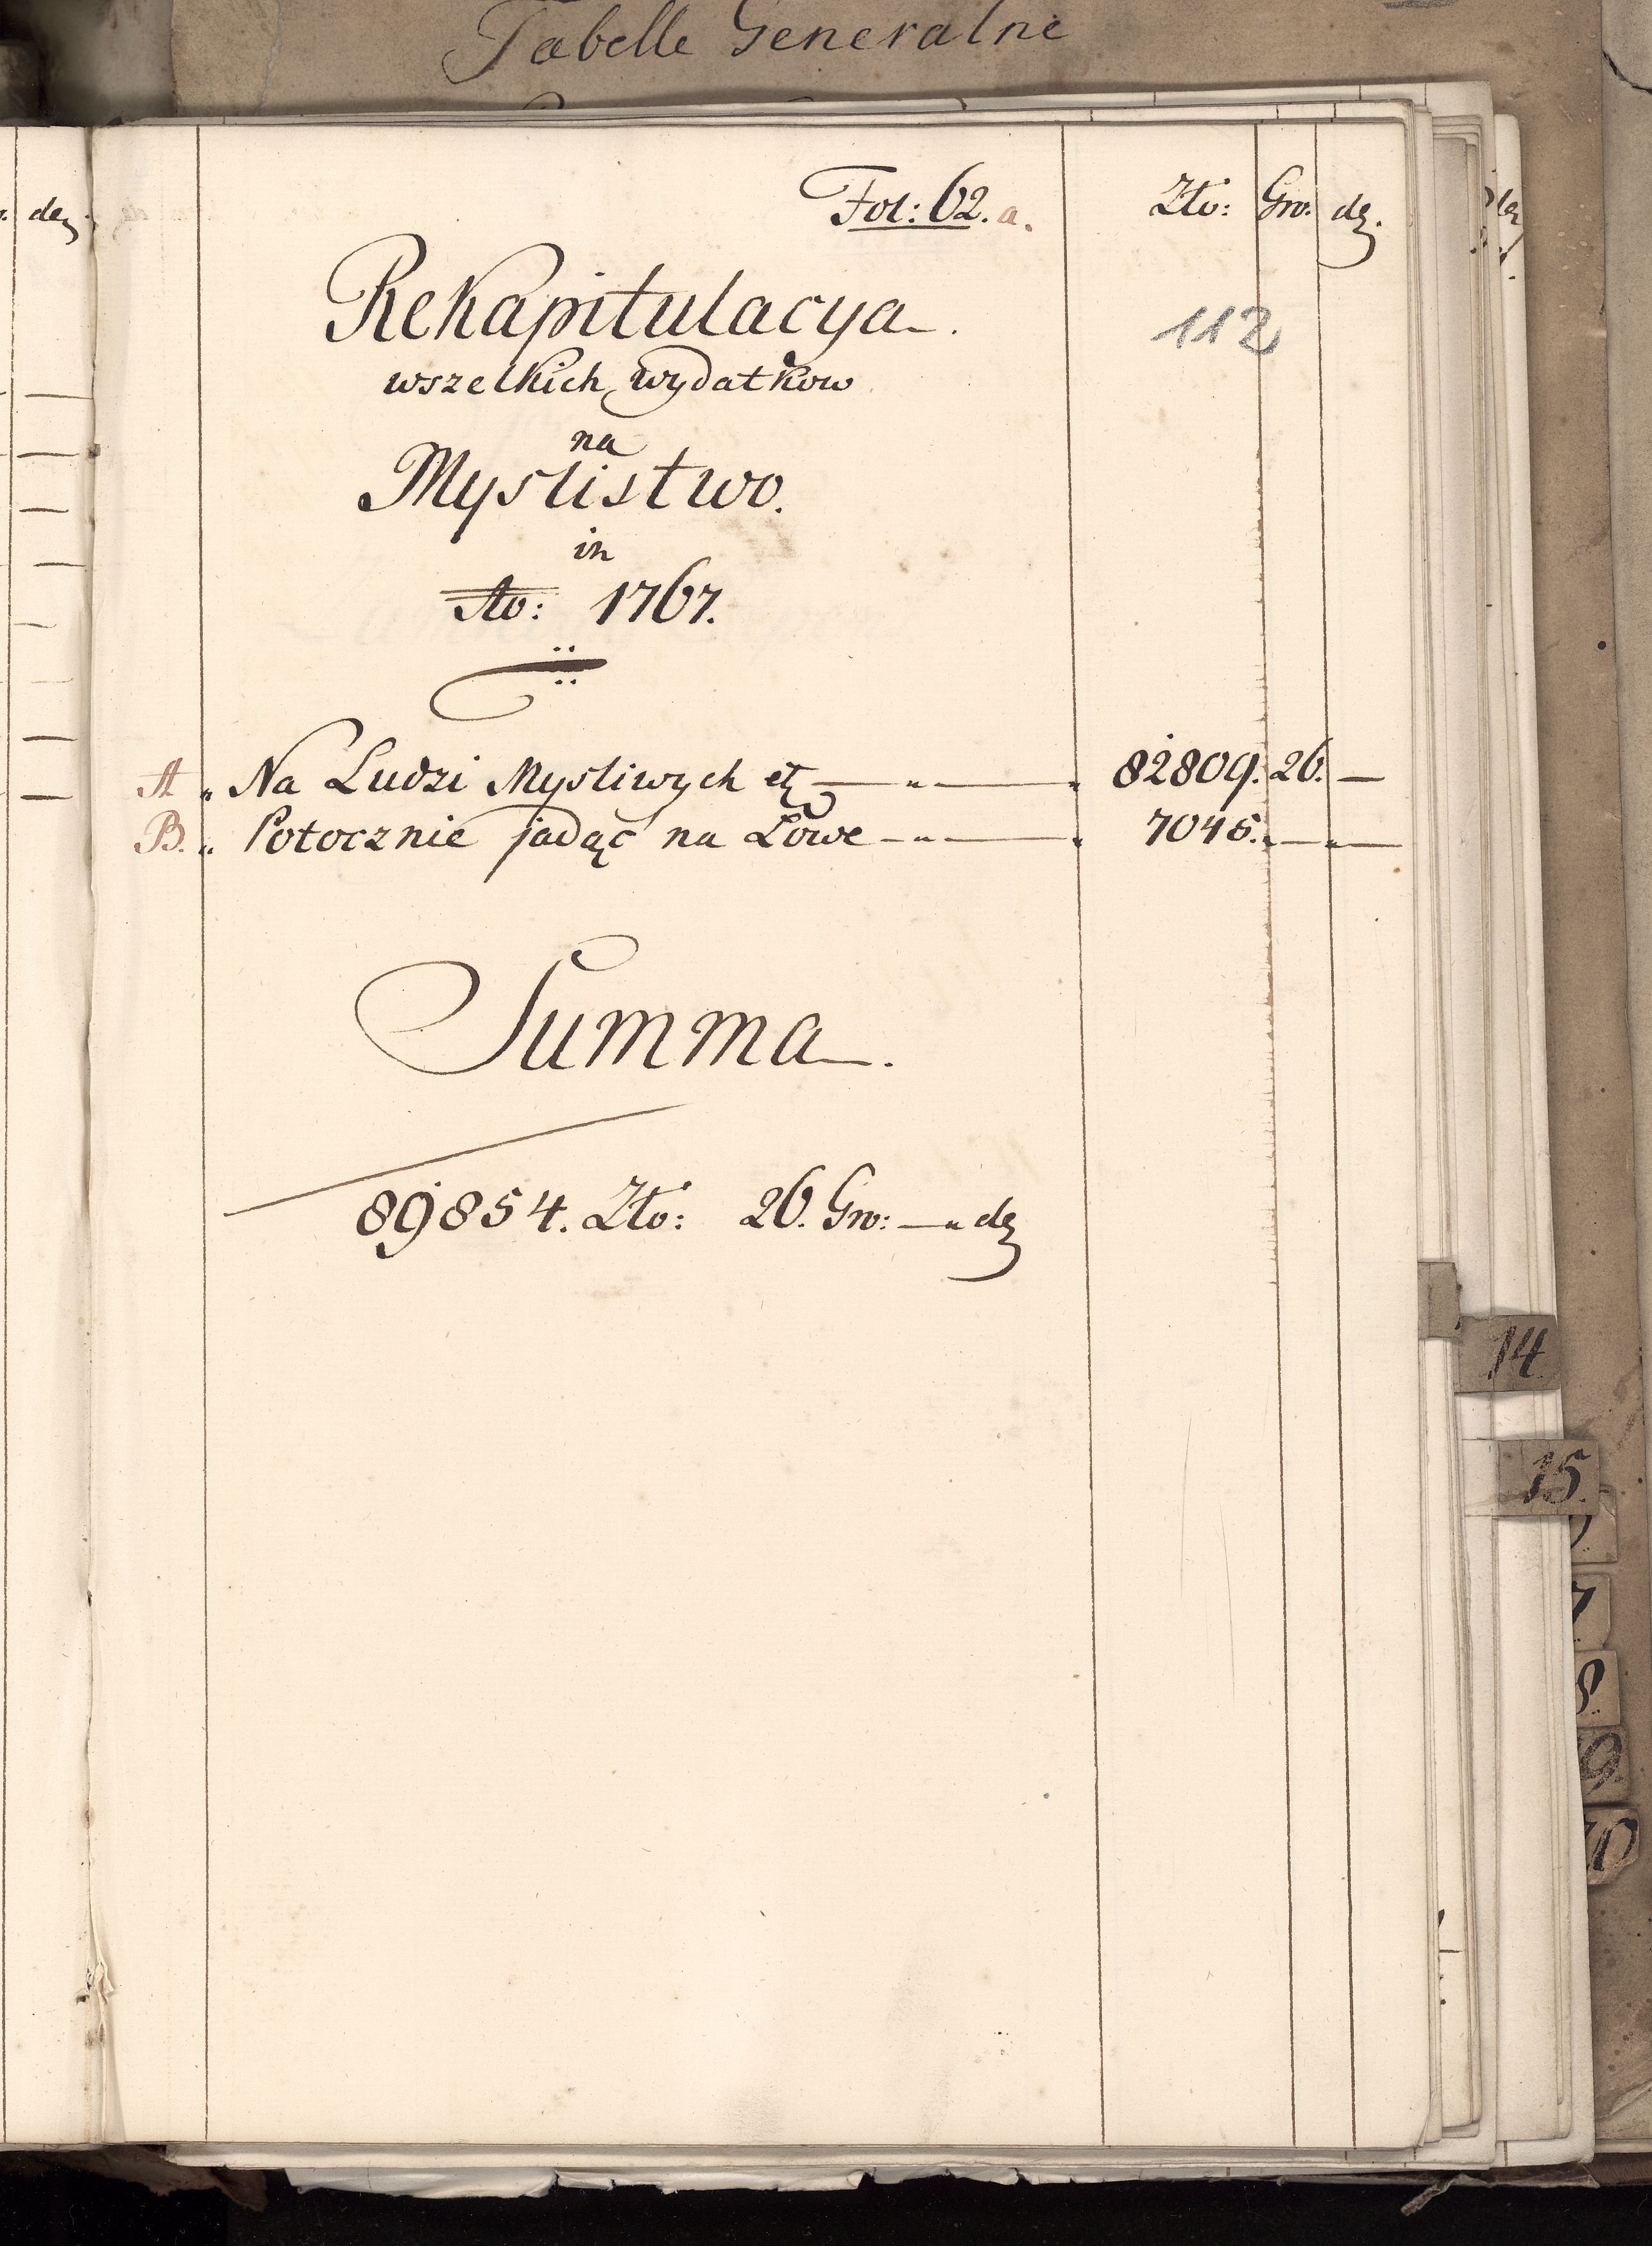 Tabelle Generalne
Fol: 62. a.
Zło: Gro. dę.
Rekapitulacya.
112
wszelkich wydatkow
na
Myslistwo.
in
Ao: 1767.
A „ Na Ludzi Mysliwych etc — „ — „ 82809. 26. —
B. „ Potocznie jadąc na Łowe — „ — „ 7045. „ — „ —
Summa.
89854. Zło: 26. Gro: — „ dę
14
15.
7.
8.
9.